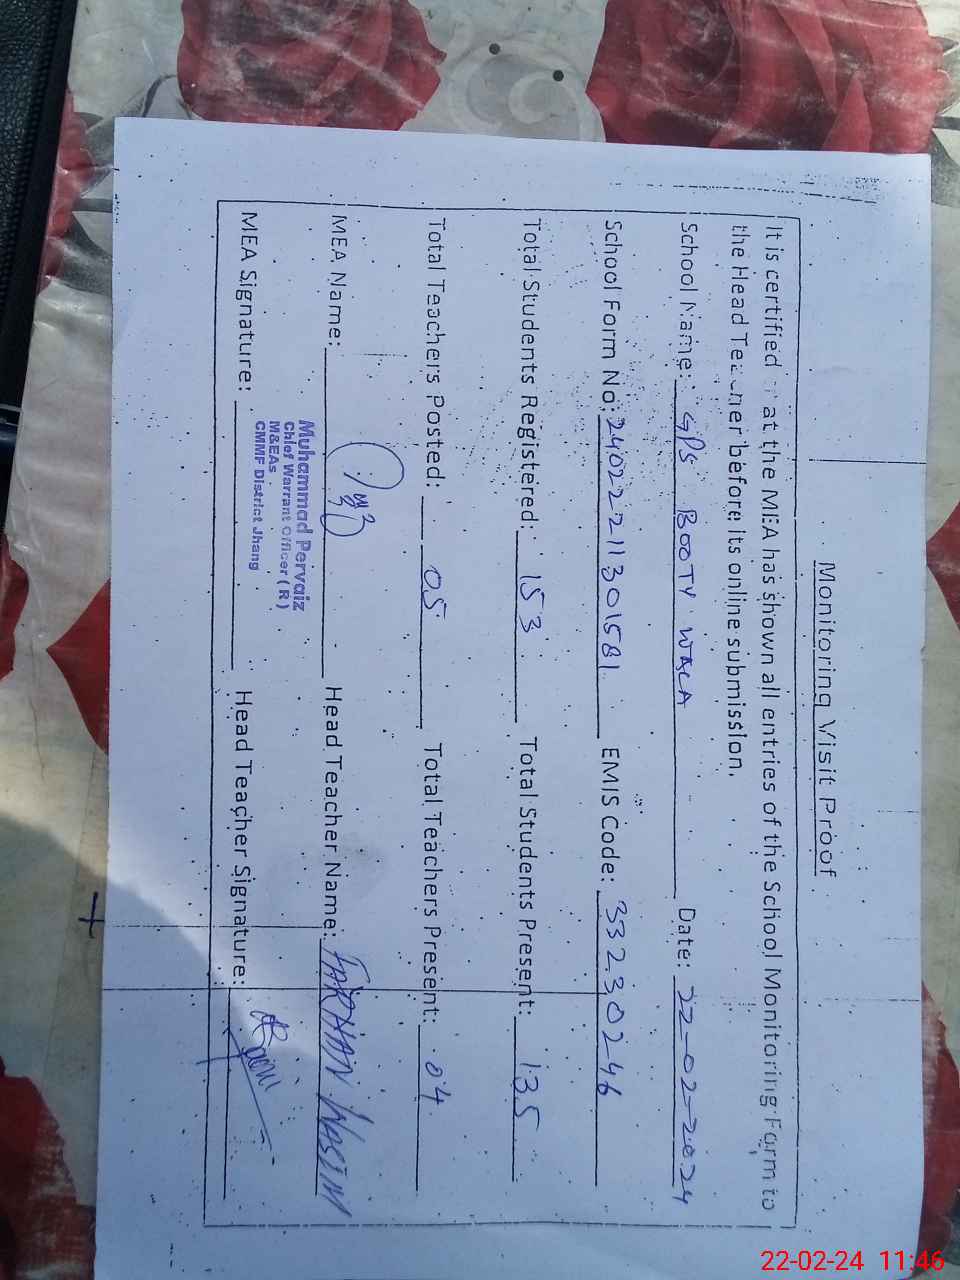 Monitoring Visit Proof
It is certified that the MEA has shown all entries of the School Monitoring Form to
the Head Teacher before its online submission.
School Name: GPS BOOTY WALA Date: 22-02-2024
School Form No: 24022211301581 EMIS Code: 33230246
Total Students Registered: 153 Total Students Present: 135
Total Teachers Posted: 05 Total Teachers Present: 04
MEA Name: Head Teacher Name: FARHAN WASIM
Muhammad Pervaiz
Chief Warrant Officer (R)
M&EAs
CMMF District Jhang
MEA Signature: Head Teacher Signature:
22-02-24 11:46